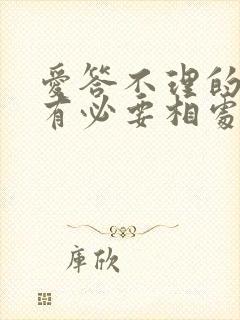 愛答不理的
有必要相處
庫欣